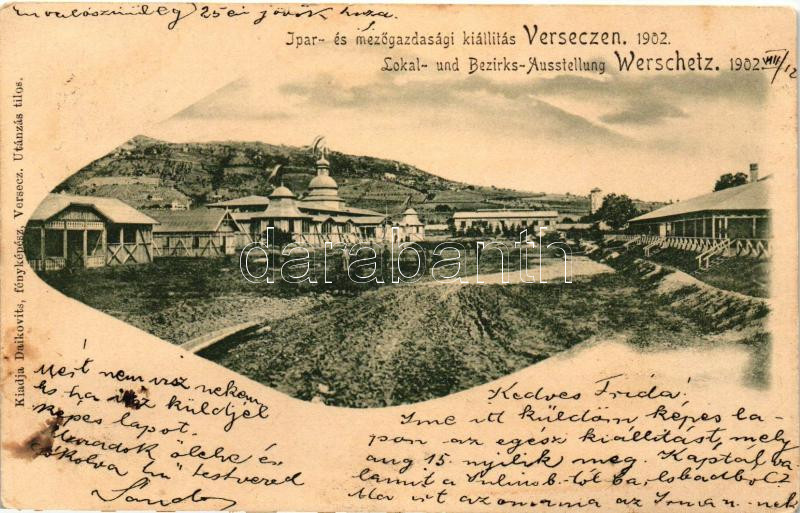 En valószinüleg 25én jövök haza.
Ipar- és mezőgazdasági kiállitás Verseczen. 1902.
Lokal- und Bezirks-Ausstellung Werschetz. 1902
VIII/12
Kiadja Daikovits, fényképész, Versecz. Utánzás tilos.
darabanth.com
Mért nem irsz nekem
és ha irsz küldjél
képes lapot.
Maradok ölelve és
csókolva hű testvered
Sándor
Kedves Frida!
Ime itt küldöm képes la-
pon az egész kiállitást, mely
aug 15. nyilik meg. Kaptál va-
lamit a
Ma irt az